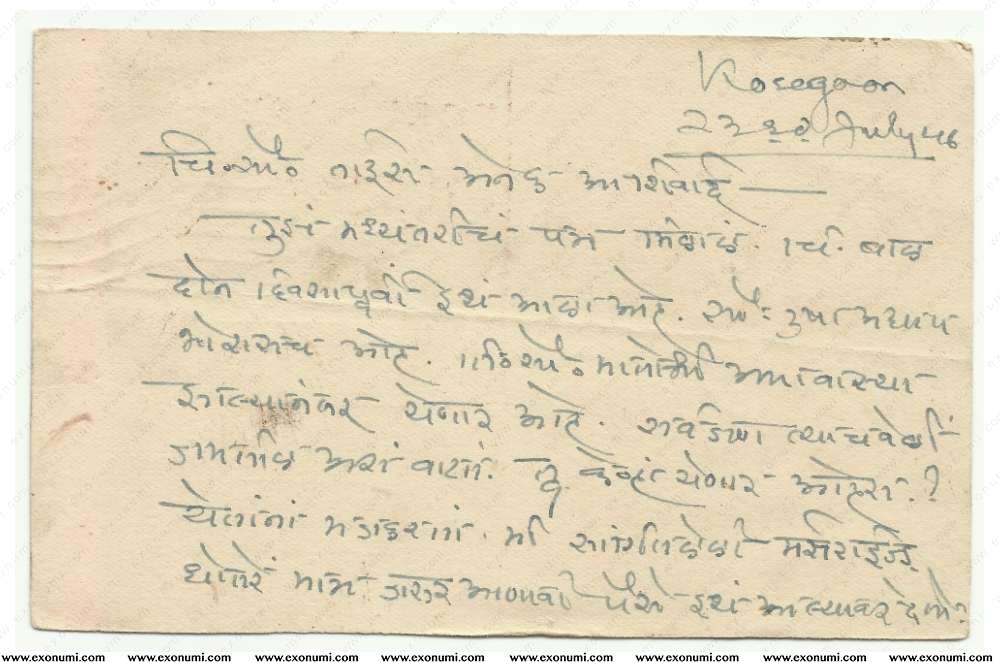 Koregaon
23rd July 46
चि. सौ. ताईस अनेक आशिर्वाद
तुझं मध्यंतरीचं पत्र मिळालं. चि. बाळ
दोन दिवसापूर्वी इथं आला आहे. सौ. उषा अद्याप
भोरासच आहे. ती. सौ. मामी अमावास्या
झाल्यानंतर येणार आहे. सर्वजण त्याचवेळीं
जमतील असं वाटतं. तू केव्हां येणार आहेस?
येतांना मजकरतां मी सांगितलेली मर्सराईज्ड
धोतरं मात्र जरुर आणावी पैसे इथं आल्यावर देतो.
www.exonumi.com www.exonumi.com www.exonumi.com www.exonumi.com www.exonumi.com www.exonumi.com www.exonumi.com www.exonumi.com